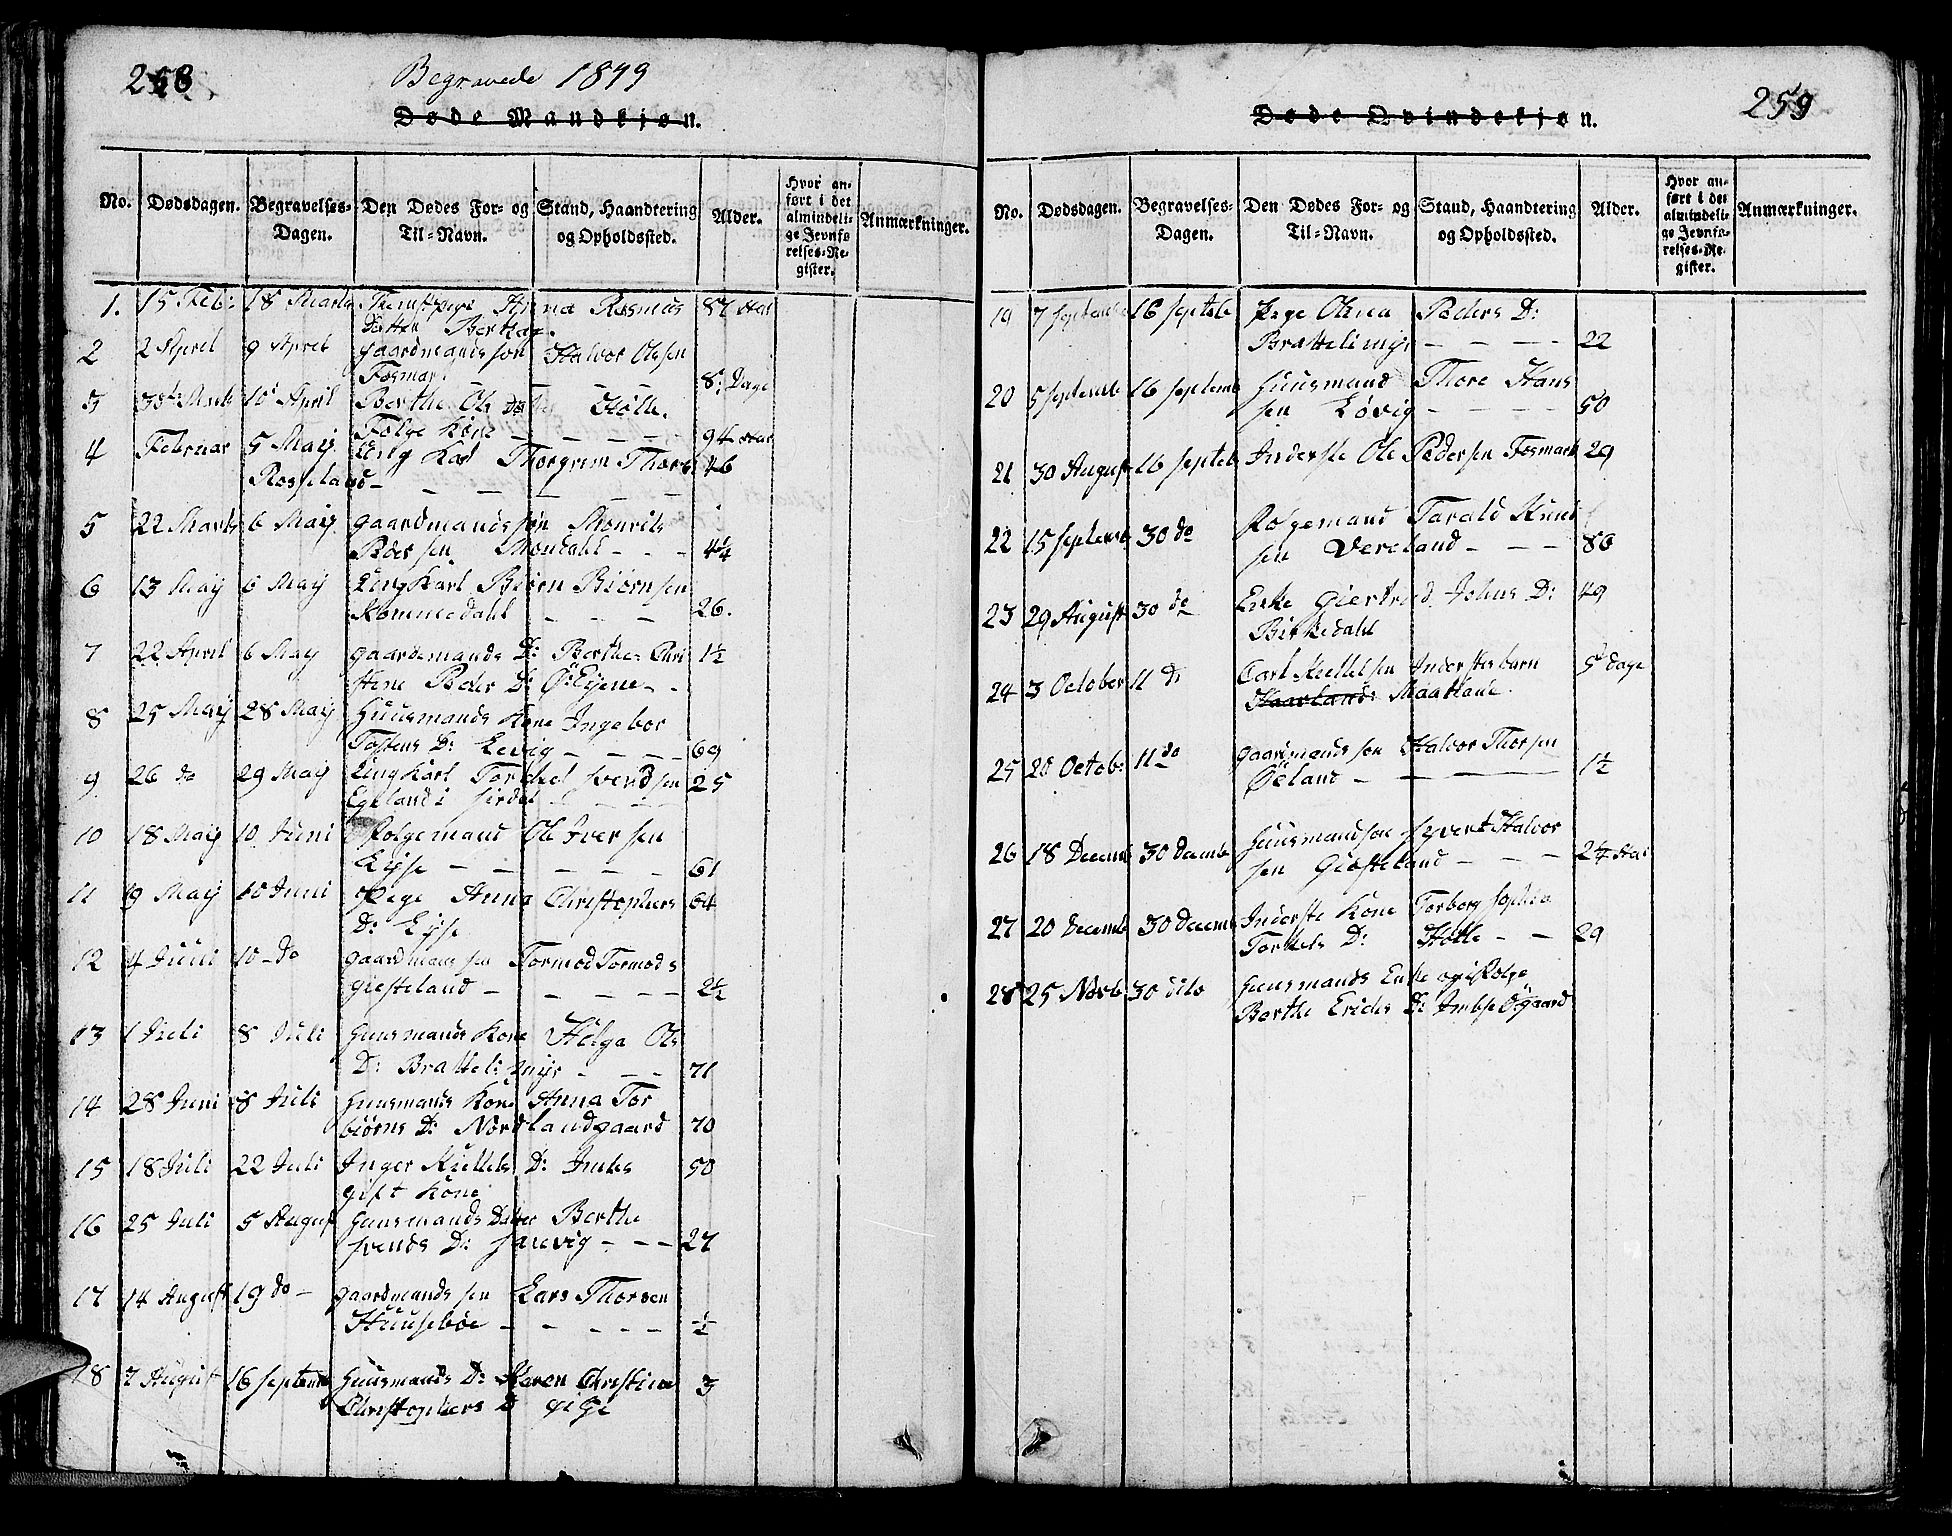 258
Begravede 1849
Døde Mandkjøn.
No. Dødsdagen. Begravelses-Dagen. Den Dødes For- og Til-Navn. Stand, Haandtering og Opholdssted. Alder. Hvor anført i det almindelige Jevnførelses-Register. Anmærkninger.
1. 15 Feb: 18 Marts Anna Rasmus 87 Aar
Datter
2 2 April 9 April gaardmands søn Halvor Olssen
Fosmark 8: Dage
3 30: Marts 10 April Berthe Ols Datter Hølle.
Følge Kone 94 Aar
4 Februar 5 Maij Ung Karl Thorgrim Thors 46
Rosseland
5 22 Marts 6 Maij gaardmands søn Monrits
Peder sen Mondahl 4¼
6 13 Maij 6 Maij Ung Karl Biørn Biørnsen
Kommedahl 26.
7 22 April 6 May gaardemands D: Berthe Chri 1½
stene Peder D: Øiejene
8 25 Maij 28 Maij Huusmands Kone Ingebor
Tostens D: Levig 69
9 26 do 29 Maij Ung Karl Torkel Svendsen 25
Egeland i Sirdal
10 18 Maij 10 Juni Følgemand Ole Iversen
Eije 61
11 9 Maij 10 Juni Pige Anna Christophers 64
D: Eije
12 4 Juni 10 do gaardmans søn Tormod Tormods
Giesteland 2½
13 1 Juli 8 Juli Huusmands Kone Helga Ols
D: Brattelimijr 71
14 28 Juni 8 Juli Huusmands Kone Anna Tor
biørns D: Nordlandgaard 70
15 18 Juli 22 Juli Inger Kiettels D: Imbs 50
gift Kone
16 25 Juli 5 August Huusmands Datter Berthe
Svends D: 27
17 14 August 19 do gaardmands søn Lars Thorsen
Huusebøe ½
18 7 August 16 Septemb Huusmands D: Karen Christine 3
Christophers D
259
Døde Qvindekjøn.
No. Dødsdagen. Begravelses-Dagen. Den Dødes For- og Til-Navn. Stand, Haandtering og Opholdssted. Alder. Hvor anført i det almindelige Jevnførelses-Register. Anmærkninger.
19 7 Septembe 16 Septbe Pige Olena Peders D:
Brattelimijr 22
20 5 Septembe 16 Septemb Huusmand Thore Hans
sen Løvig 50
21 30 August 16 Septeb Inderste Ole Pedersen Fosmark 29
22 15 Septemb 30 do Følgemand Tarald Knud
sen Vereland 86
23 29 August 30 do Enke Giertrud Johns D: 49
Birkedahl
24 3 October 11 D: Carl Kiettelsen Inderstesbarn 5 Dage
Haaland: Maatland
25 28 Octob: 11 do gaardmands søn Halvor Thorsen
Øeland 1½
26 18 Decemb 30 Decembe Huusmandsøn Syvert Halvor
sen Giesteland 2¼ Aar
27 20 Decemb 30 Decemb Inderste Kone Torborg Sophia
Torkels D: Hølle 29
28 25 Novb 30 dito Huusmands Enke og i Følge
Berthe Erichs D: Imbse Øgaard